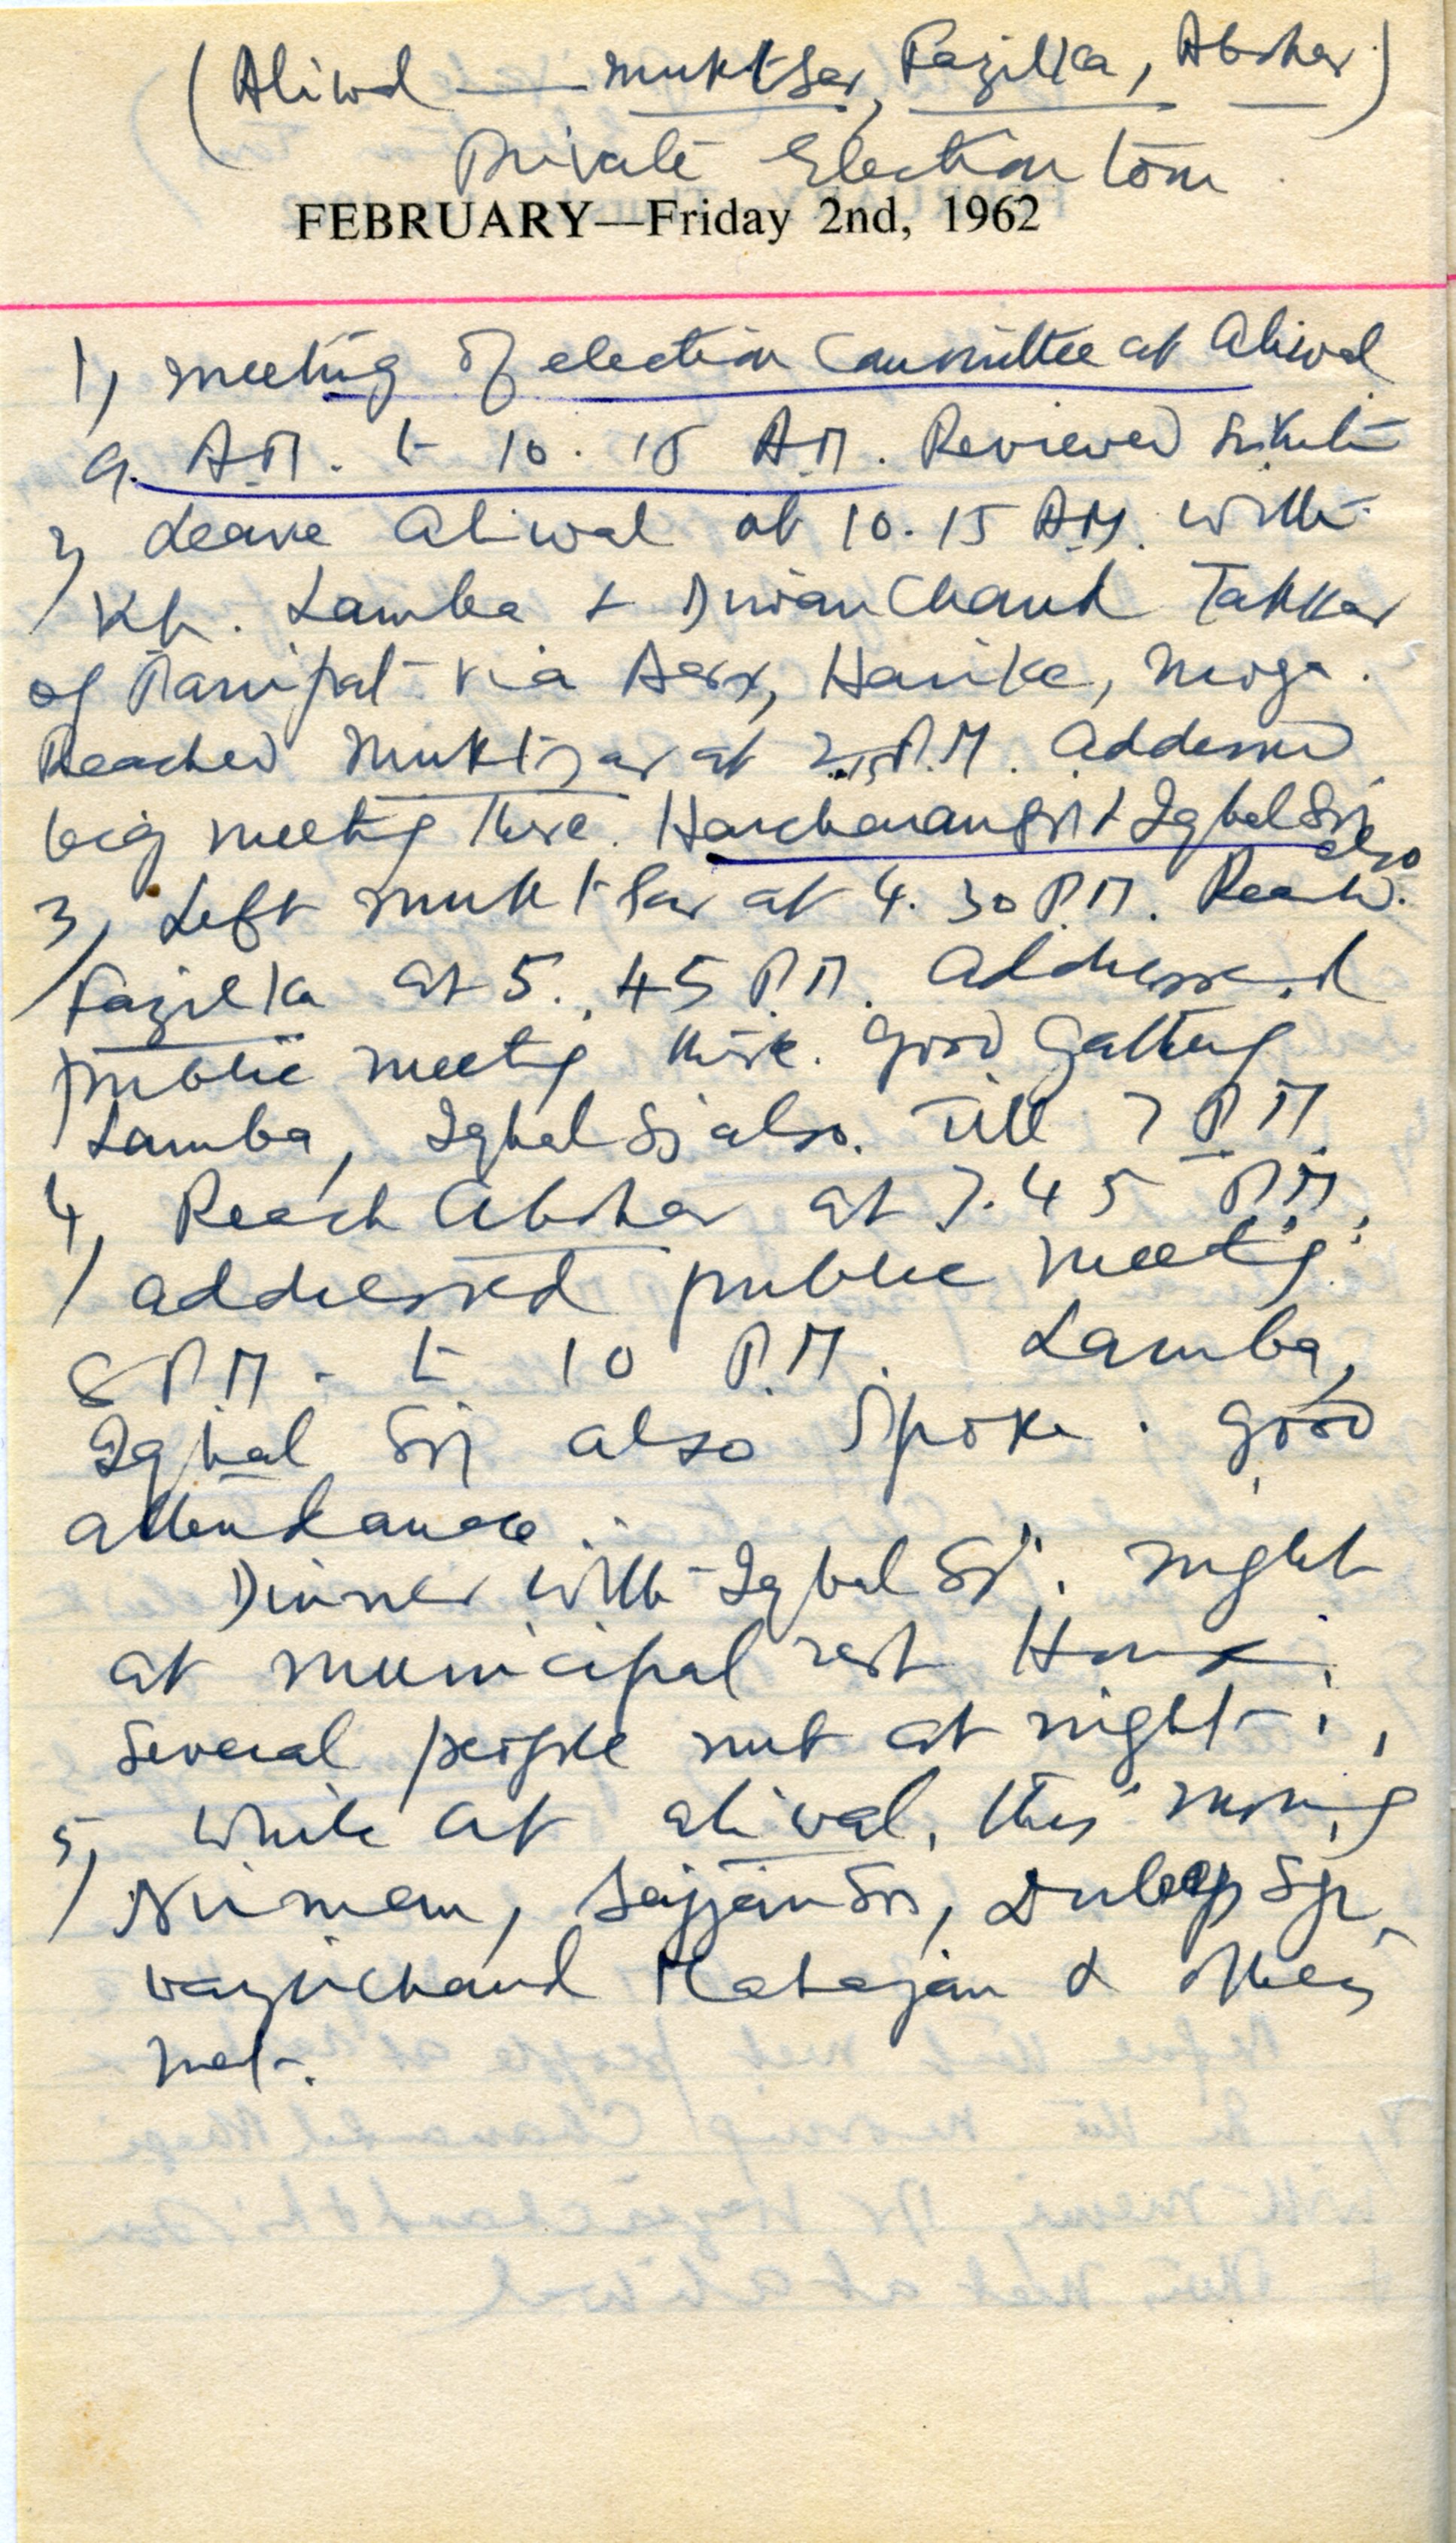 (Aliwal — Muktsar, Fazilka, Abohar)
Private Election tour
FEBRUARY—Friday 2nd, 1962
1, meeting of election Committee at Aliwal
9. A.M. to 10.15 A.M. Reviewed
2, Leave Aliwal at 10.15 A.M. with
Kh. Lamba & Diwan Chand Takkar
of Panipat via Harike, Moga.
Reached Muktsar at 2.15 P.M. addressed
big meeting there. Harcharan Sn & Iqbal Sn also
3, Left Muktsar at 4.30 P.M. Reach
Fazilka at 5.45 P.M. Addressed
public meeting there. Good gathering
Lamba, Iqbal Sn also. Till 7 P.M.
4, Reach Abohar at 7.45 P.M.
addressed public meeting
8 P.M. to 10 P.M. Lamba,
Iqbal Sn also spoke. good
attendance.
Dinner with Iqbal Sn. night
at municipal rest House.
Several people met at night.
5, While at Aliwal, this morning
Sajjan Sn, Duleep Sn,
Wazirchand Mahajan & others
met.